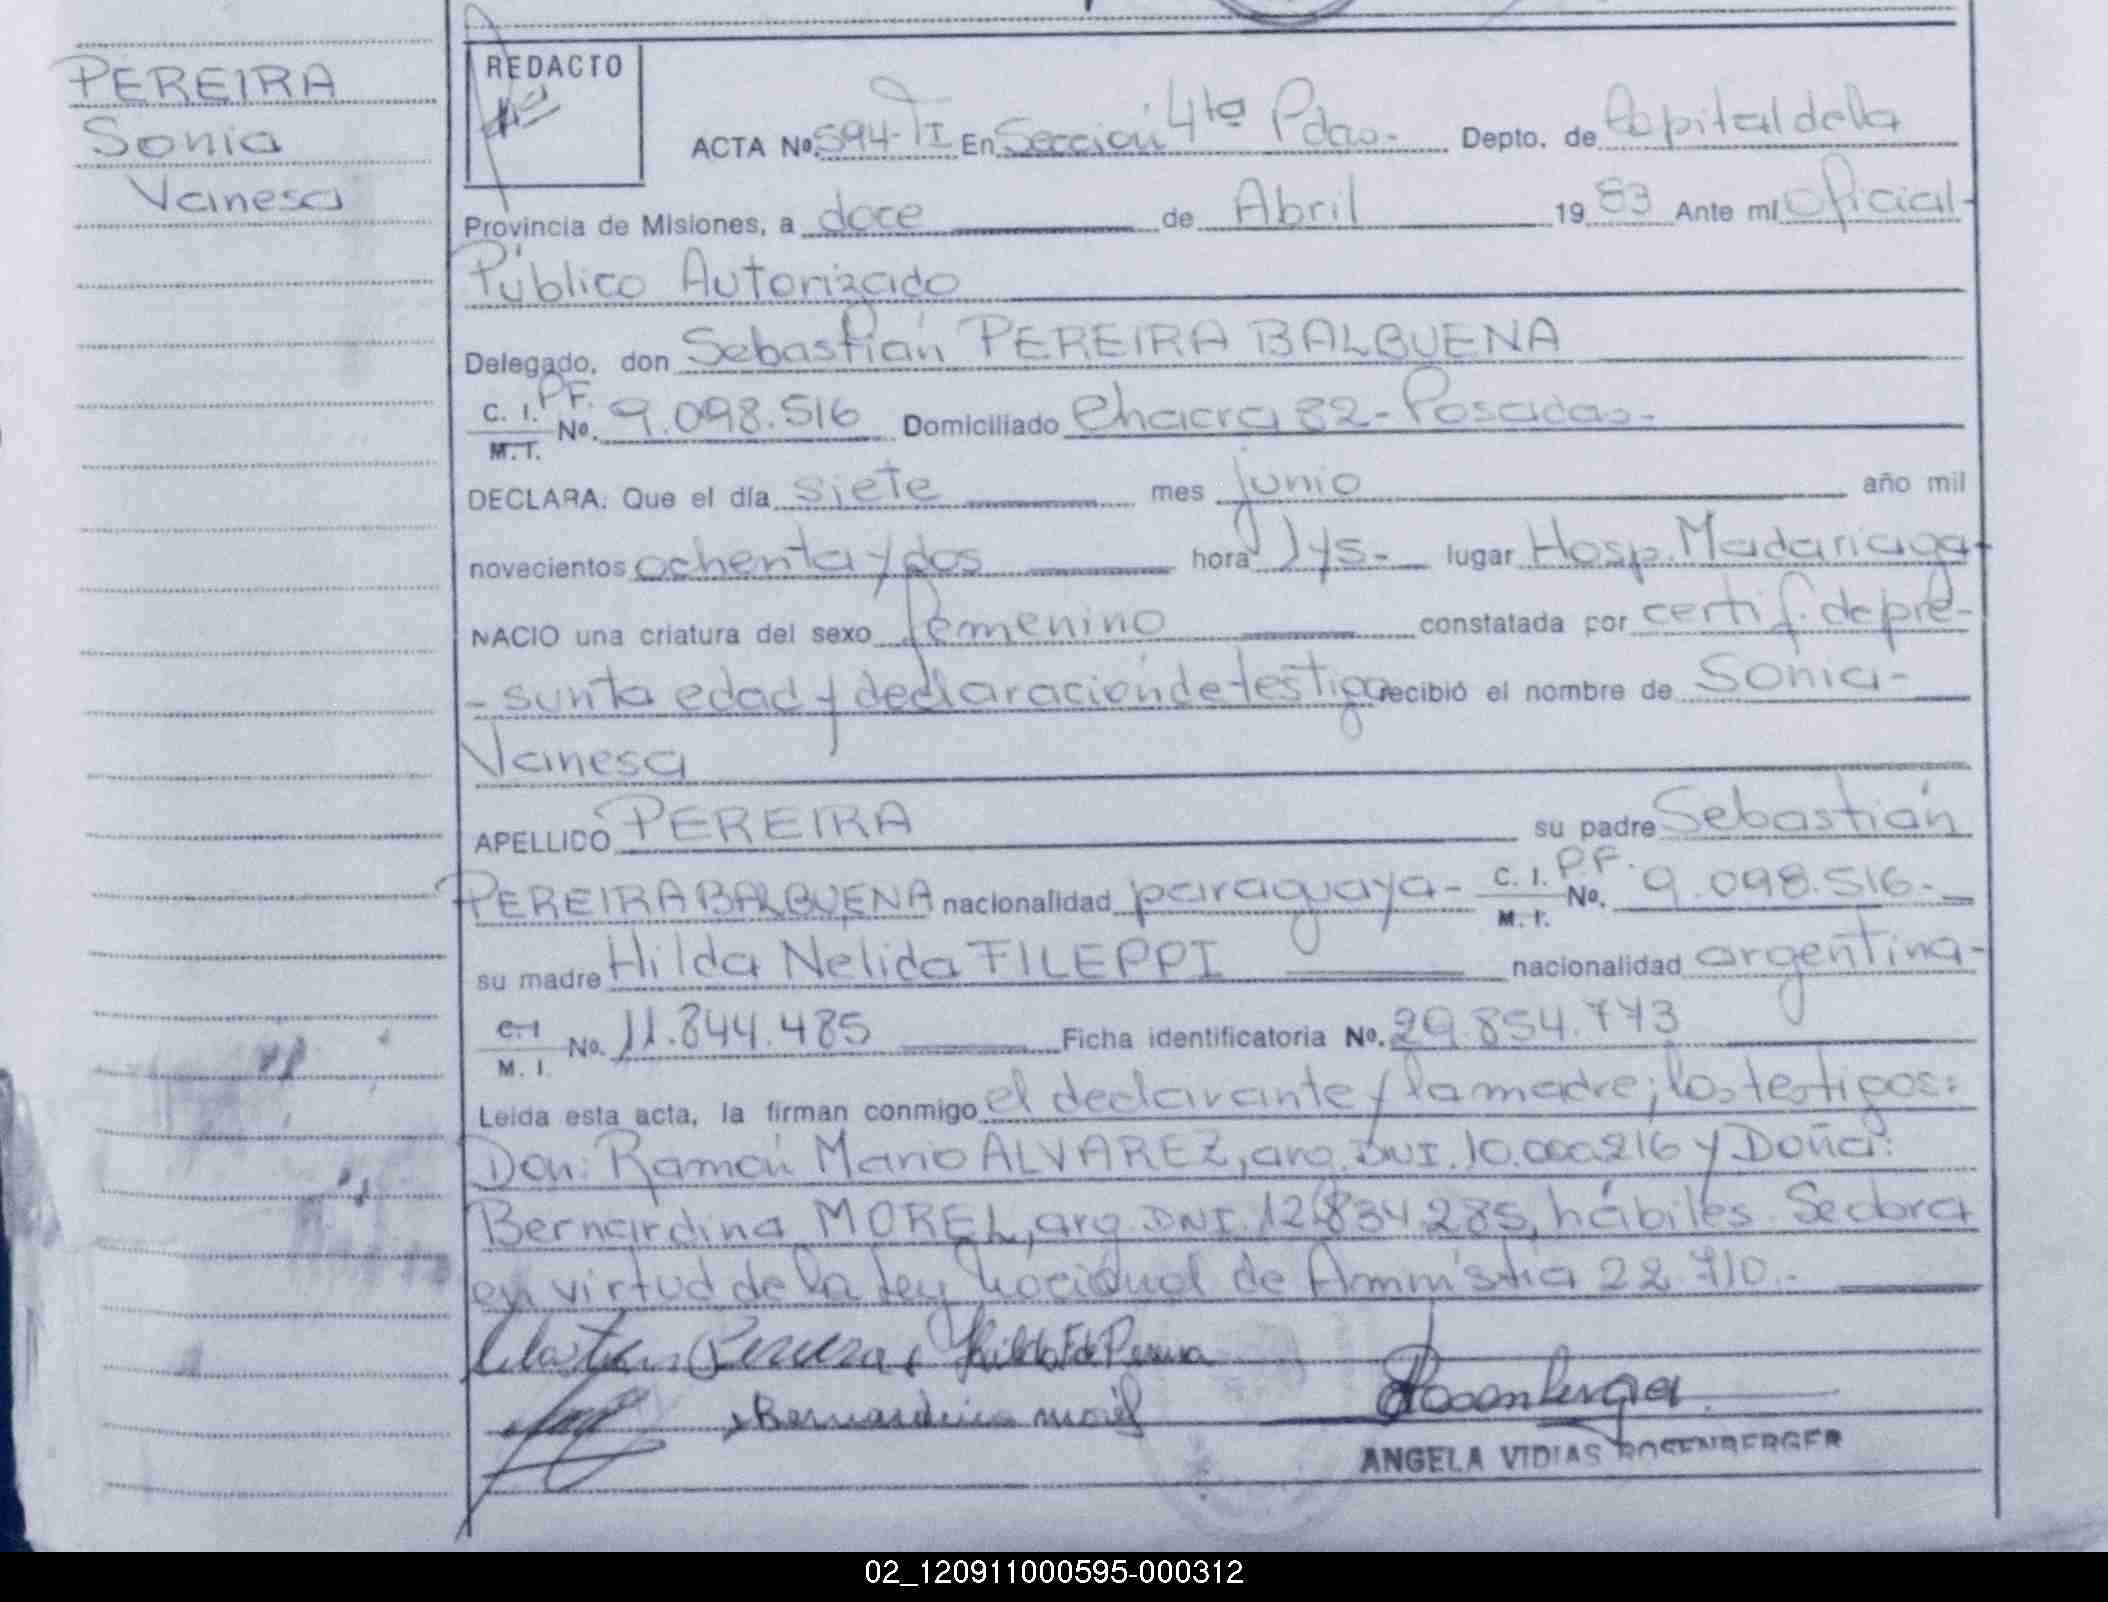 PEREIRA
Sonia
Vanesa
REDACTO
ACTA Nº 594-TI En Sección 4ta Pdas.- Depto. de Capital de la
Provincia de Misiones, a doce de Abril 1983 Ante mi Oficial
Público Autorizado
Delegado, don Sebastián PEREIRA BALBUENA
C. I. PF. Nº. 9.098.516 Domiciliado Chacra 82 - Posadas.-
M. I.
DECLARA: Que el día siete mes junio año mil
novecientos ochenta y dos hora 1y5.- lugar Hosp. Madariaga-
NACIO una criatura del sexo femenino constatada por certif. de pre-
- sunta edad y declaración de testigo recibió el nombre de Sonia-
Vanesa
APELLIDO PEREIRA su padre Sebastián
PEREIRA BALBUENA nacionalidad paraguaya - C. I. P.F. Nº. 9.098.516.-
M. I.
su madre Hilda Nelida FILEPPI nacionalidad argentina-
C. I Nº. 11.844.485 Ficha identificatoria Nº. 29.854.773
M. I.
Leida esta acta, la firman conmigo el declarante y la madre; los testigos:
Don: Ramón Mario ALVAREZ, arg. DNI. 10.000216 y Doña:
Bernardina MOREL, arg. DNI. 12.834.285, hábiles. Se labra
en virtud de la Ley Nacional de Amnistia 22.710.-
Pereira Hilda F de Pereira
Bernardina Morel Rosenberger
ANGELA VIDIAS ROSENBERGER
02_120911000595-000312